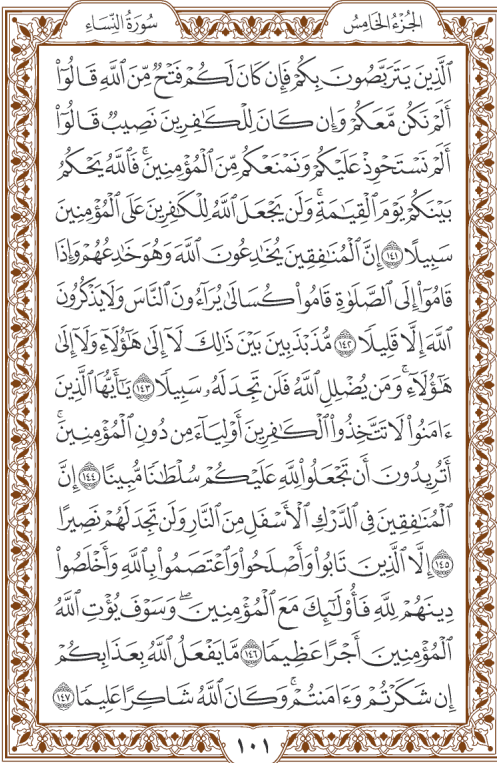 الجُزْءُ الخَامِسُ سُورَةُ النِّسَاءِ
الَّذِينَ يَتَرَبَّصُونَ بِكُمْ فَإِن كَانَ لَكُمْ فَتْحٌ مِّنَ اللَّهِ قَالُوٓا۟
أَلَمْ نَكُن مَّعَكُمْ وَإِن كَانَ لِلْكَٰفِرِينَ نَصِيبٌ قَالُوٓا۟
أَلَمْ نَسْتَحْوِذْ عَلَيْكُمْ وَنَمْنَعْكُم مِّنَ الْمُؤْمِنِينَ ۚ فَاللَّهُ يَحْكُمُ
بَيْنَكُمْ يَوْمَ الْقِيَٰمَةِ ۗ وَلَن يَجْعَلَ اللَّهُ لِلْكَٰفِرِينَ عَلَى الْمُؤْمِنِينَ
سَبِيلًا ١٤١ إِنَّ الْمُنَٰفِقِينَ يُخَٰدِعُونَ اللَّهَ وَهُوَ خَٰدِعُهُمْ وَإِذَا
قَامُوٓا۟ إِلَى الصَّلَوٰةِ قَامُوا۟ كُسَالَىٰ يُرَآءُونَ النَّاسَ وَلَا يَذْكُرُونَ
اللَّهَ إِلَّا قَلِيلًا ١٤٢ مُّذَبْذَبِينَ بَيْنَ ذَٰلِكَ لَآ إِلَىٰ هَٰٓؤُلَآءِ وَلَآ إِلَىٰ
هَٰٓؤُلَآءِ ۚ وَمَن يُضْلِلِ اللَّهُ فَلَن تَجِدَ لَهُۥ سَبِيلًا ١٤٣ يَٰٓأَيُّهَا الَّذِينَ
ءَامَنُوا۟ لَا تَتَّخِذُوا۟ الْكَٰفِرِينَ أَوْلِيَآءَ مِن دُونِ الْمُؤْمِنِينَ ۚ
أَتُرِيدُونَ أَن تَجْعَلُوا۟ لِلَّهِ عَلَيْكُمْ سُلْطَٰنًا مُّبِينًا ١٤٤ إِنَّ
الْمُنَٰفِقِينَ فِي الدَّرْكِ الْأَسْفَلِ مِنَ النَّارِ وَلَن تَجِدَ لَهُمْ نَصِيرًا
١٤٥ إِلَّا الَّذِينَ تَابُوا۟ وَأَصْلَحُوا۟ وَاعْتَصَمُوا۟ بِاللَّهِ وَأَخْلَصُوا۟
دِينَهُمْ لِلَّهِ فَأُو۟لَٰٓئِكَ مَعَ الْمُؤْمِنِينَ ۖ وَسَوْفَ يُؤْتِ اللَّهُ
الْمُؤْمِنِينَ أَجْرًا عَظِيمًا ١٤٦ مَّا يَفْعَلُ اللَّهُ بِعَذَابِكُمْ
إِن شَكَرْتُمْ وَءَامَنتُمْ ۚ وَكَانَ اللَّهُ شَاكِرًا عَلِيمًا ١٤٧
١٠١